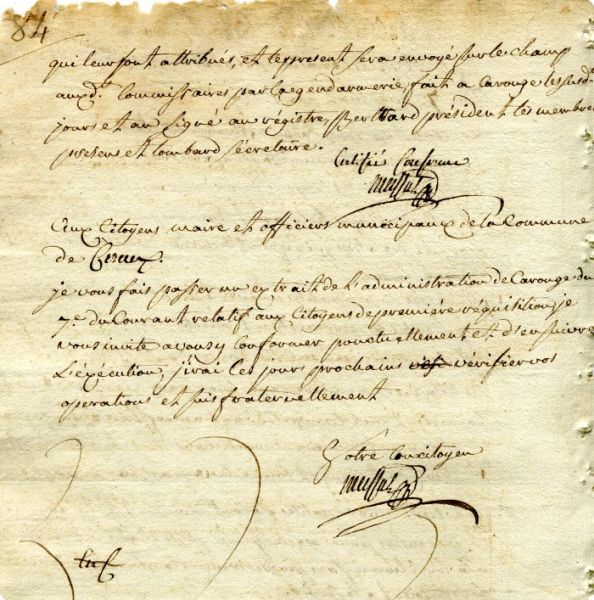 84
qui leur sont attribués, et le present sera envoyé sur le champ
auxd.t Commissaires par la gendarmerie, fait a Carouge les susd.t
jours et an Signé au régistre, président les membres
presens et Lombard Sécretaire.
Certifié Conforme
Aux Citoyens maire et officiers municipaux de la Commune
de
je vous fais passer un extrait de L'administration de Carouge du
7.e du Courant relatif aux Citoyens de première réquisition, je
vous invite a vous y Conformer ponctuellement et d'en suivre
L'exécution, j'irai Ces jours prochains vérifier vos
operations et suis fraternellement
Votre Concitoyen